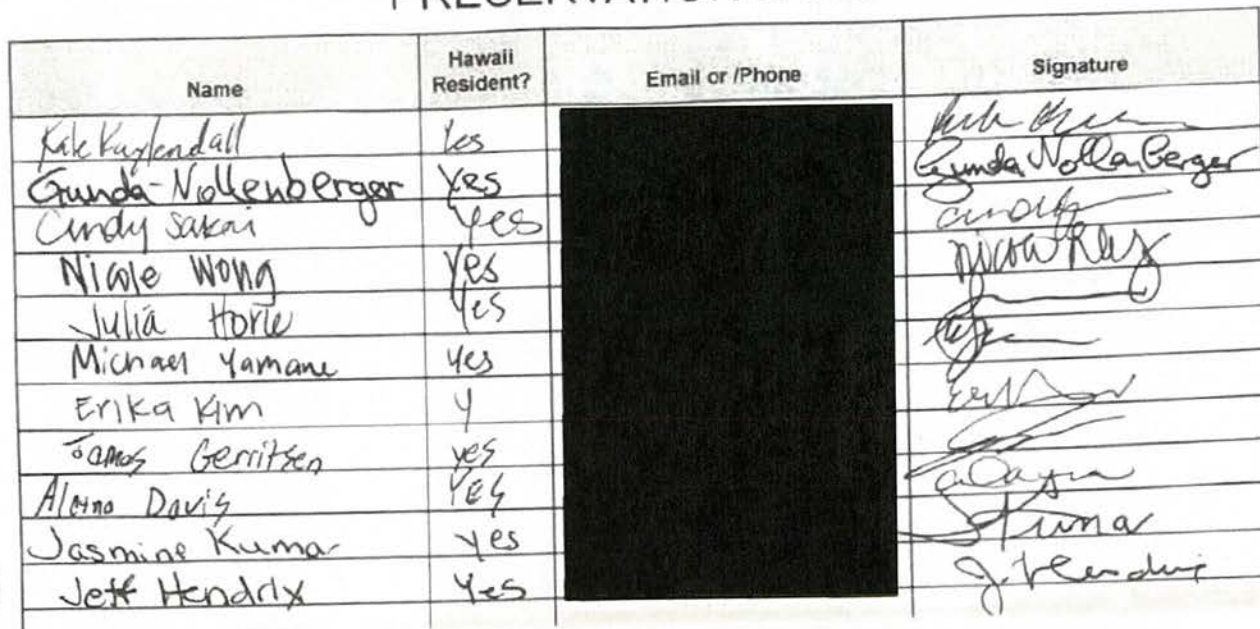 PRESERVATION
Name Hawaii Resident? Email or /Phone Signature
Kale Kuykendall Yes
Gunda Nollenberger Yes Gunda Nollenberger
Cindy Sakai Yes
Nicole Wong Yes
Julia Horie Yes
Michael Yamane Yes
Erika Kim Y
James Gerritsen yes
Davis YES
Jasmine Kumar yes Kumar
Jeff Hendrix Yes J. Hendrix